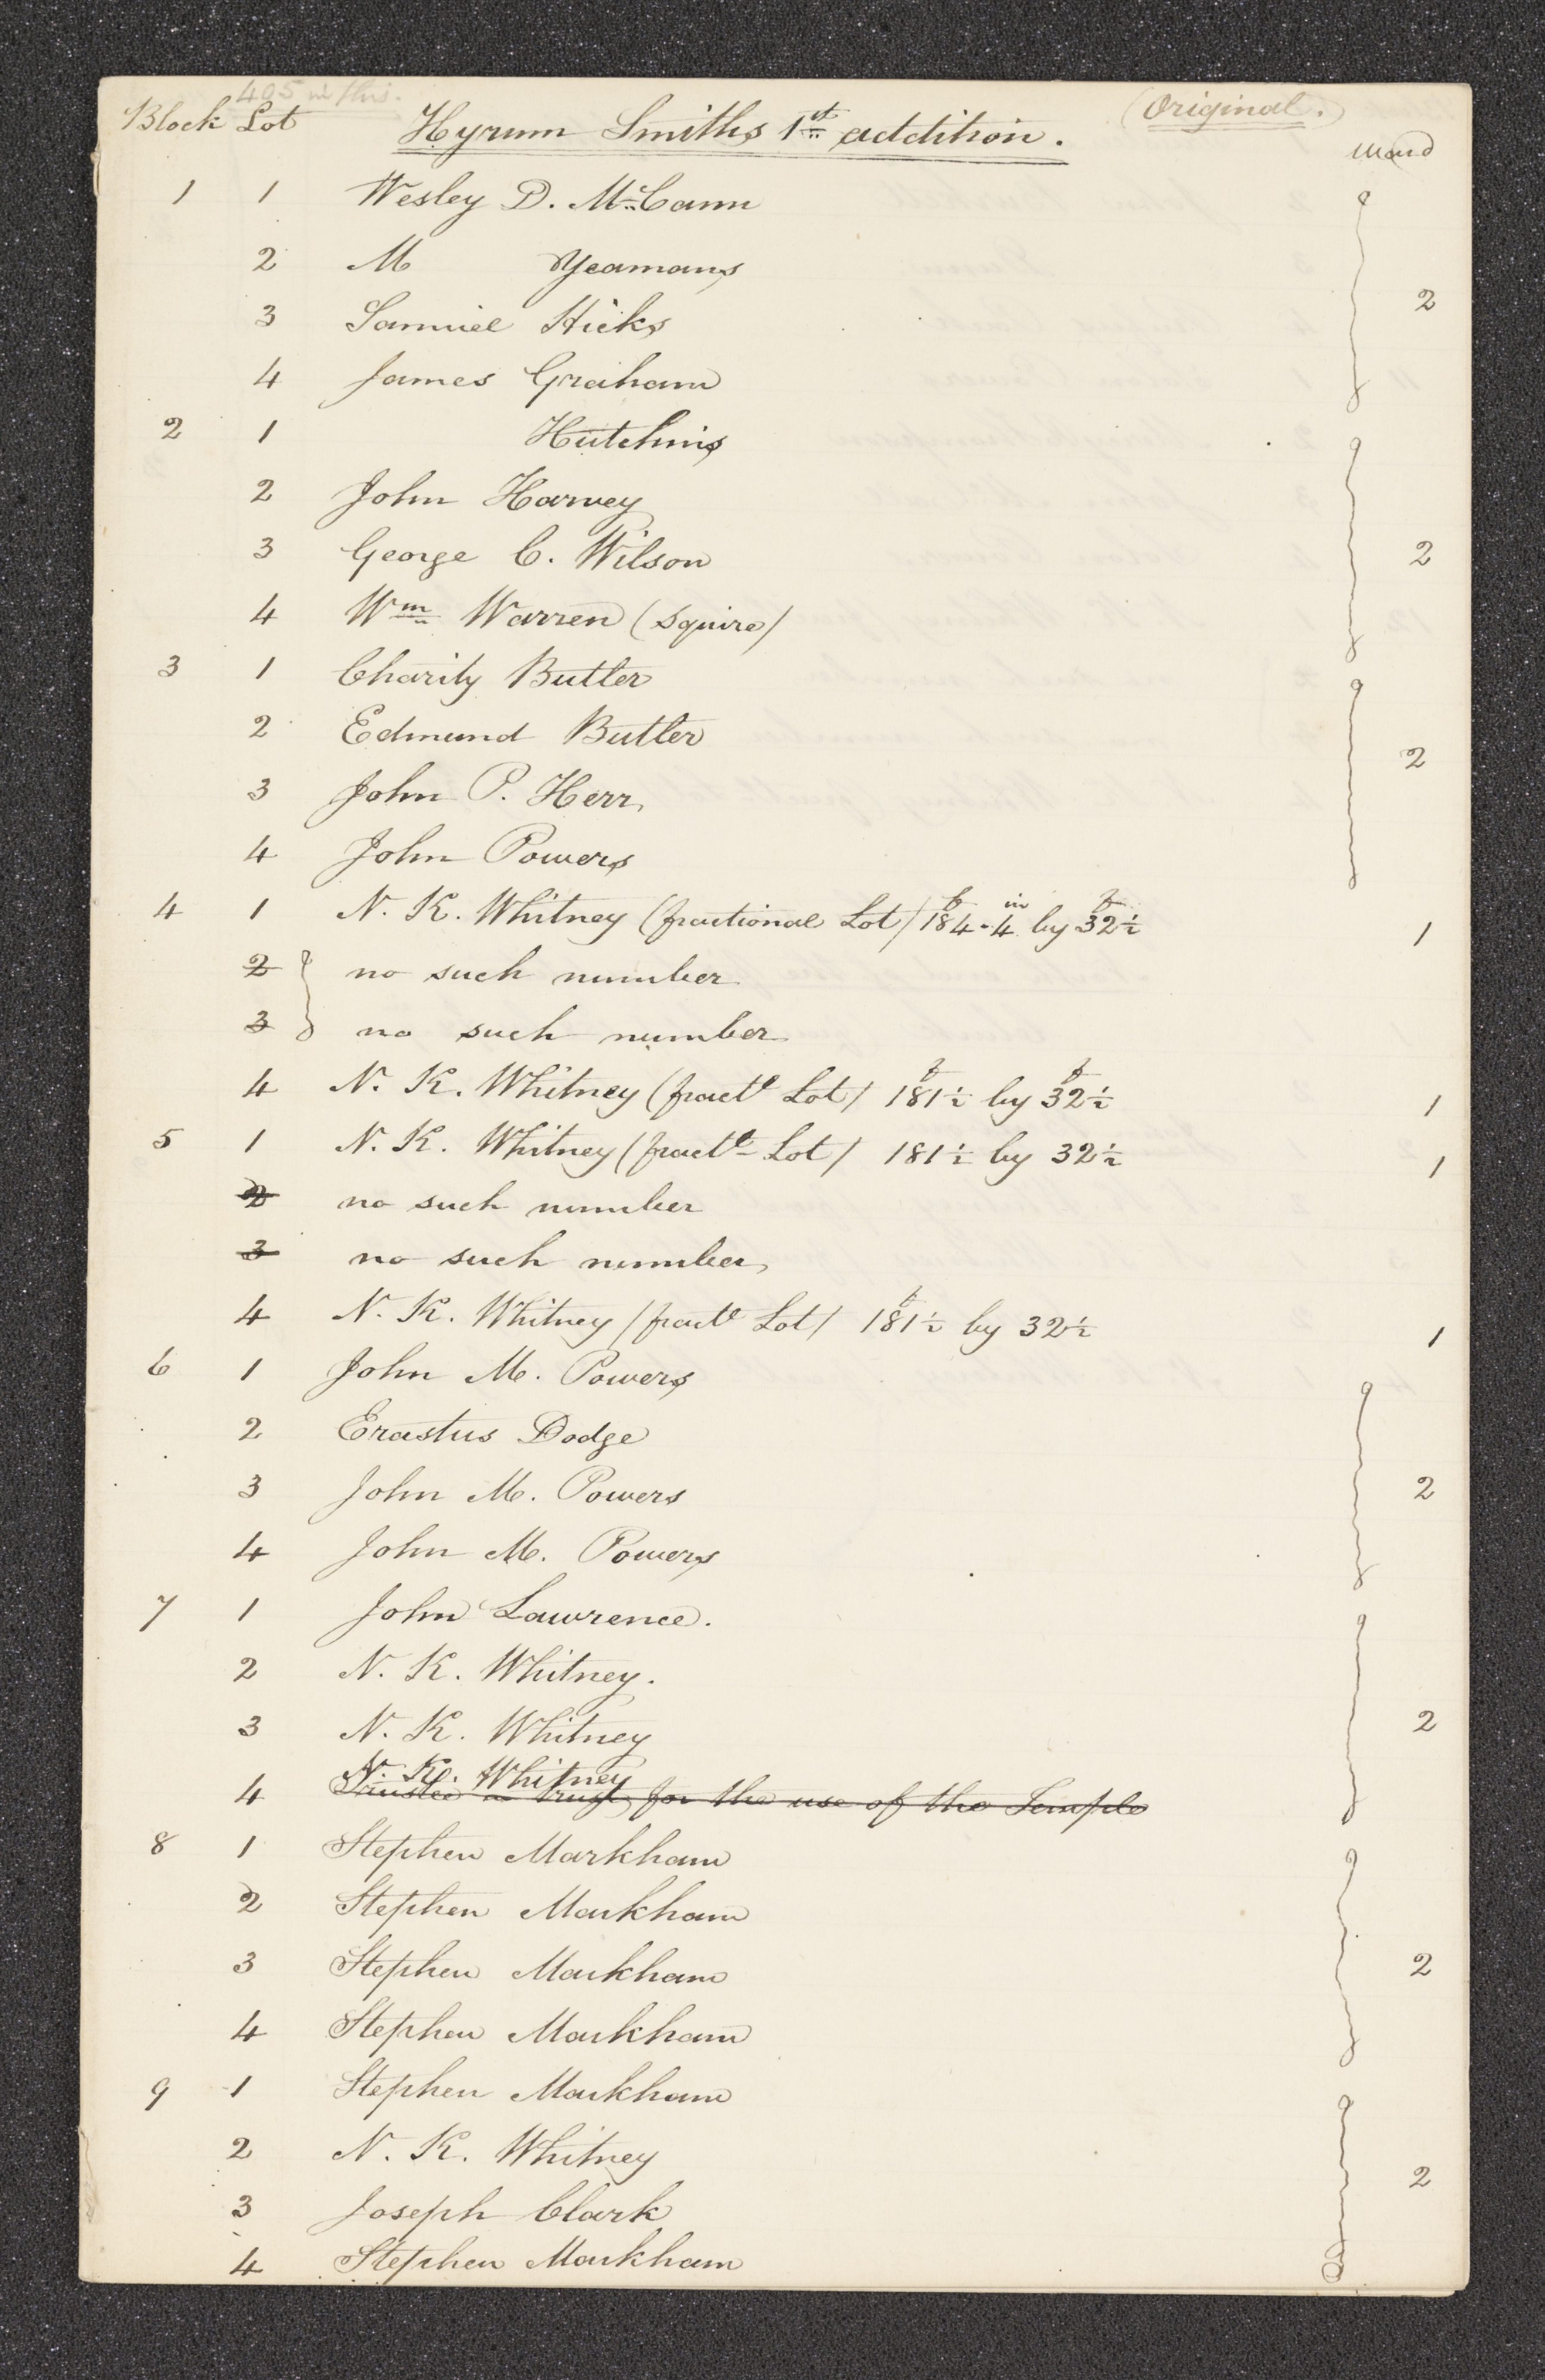 405 in this.
(Original.)
Block Lot Hyrum Smiths 1st addition. Ward
1 1 Wesley D. McCann
2 M Yeamans
3 Samuel Hicks 2
4 James Graham
2 1 Hutchins
2 John Harvey
3 George C. Wilson 2
4 Wm Warren (Squire)
3 1 Charity Butler
2 Edmund Butler
3 John P. Herr 2
4 John Powers
4 1 N. K. Whitney (fractional Lot) 184ft 4in by 32½ft 1
2 no such number
3 no such number
4 N. K. Whitney (fractl Lot) 181½ft by 32½ft 1
5 1 N. K. Whitney (fractl Lot) 181½ by 32½ 1
2 no such number
3 no such number
4 N. K. Whitney (fractl Lot) 181½ft by 32½ 1
6 1 John M. Powers
2 Erastus Dodge
3 John M. Powers 2
4 John M. Powers
7 1 John Lawrence.
2 N. K. Whitney.
3 N. K. Whitney 2
N. K. Whitney
4 Trustee in trust for the use of the Temple
8 1 Stephen Markham
2 Stephen Markham
3 Stephen Markham 2
4 Stephen Markham
9 1 Stephen Markham
2 N. K. Whitney 2
3 Joseph Clark
4 Stephen Markham